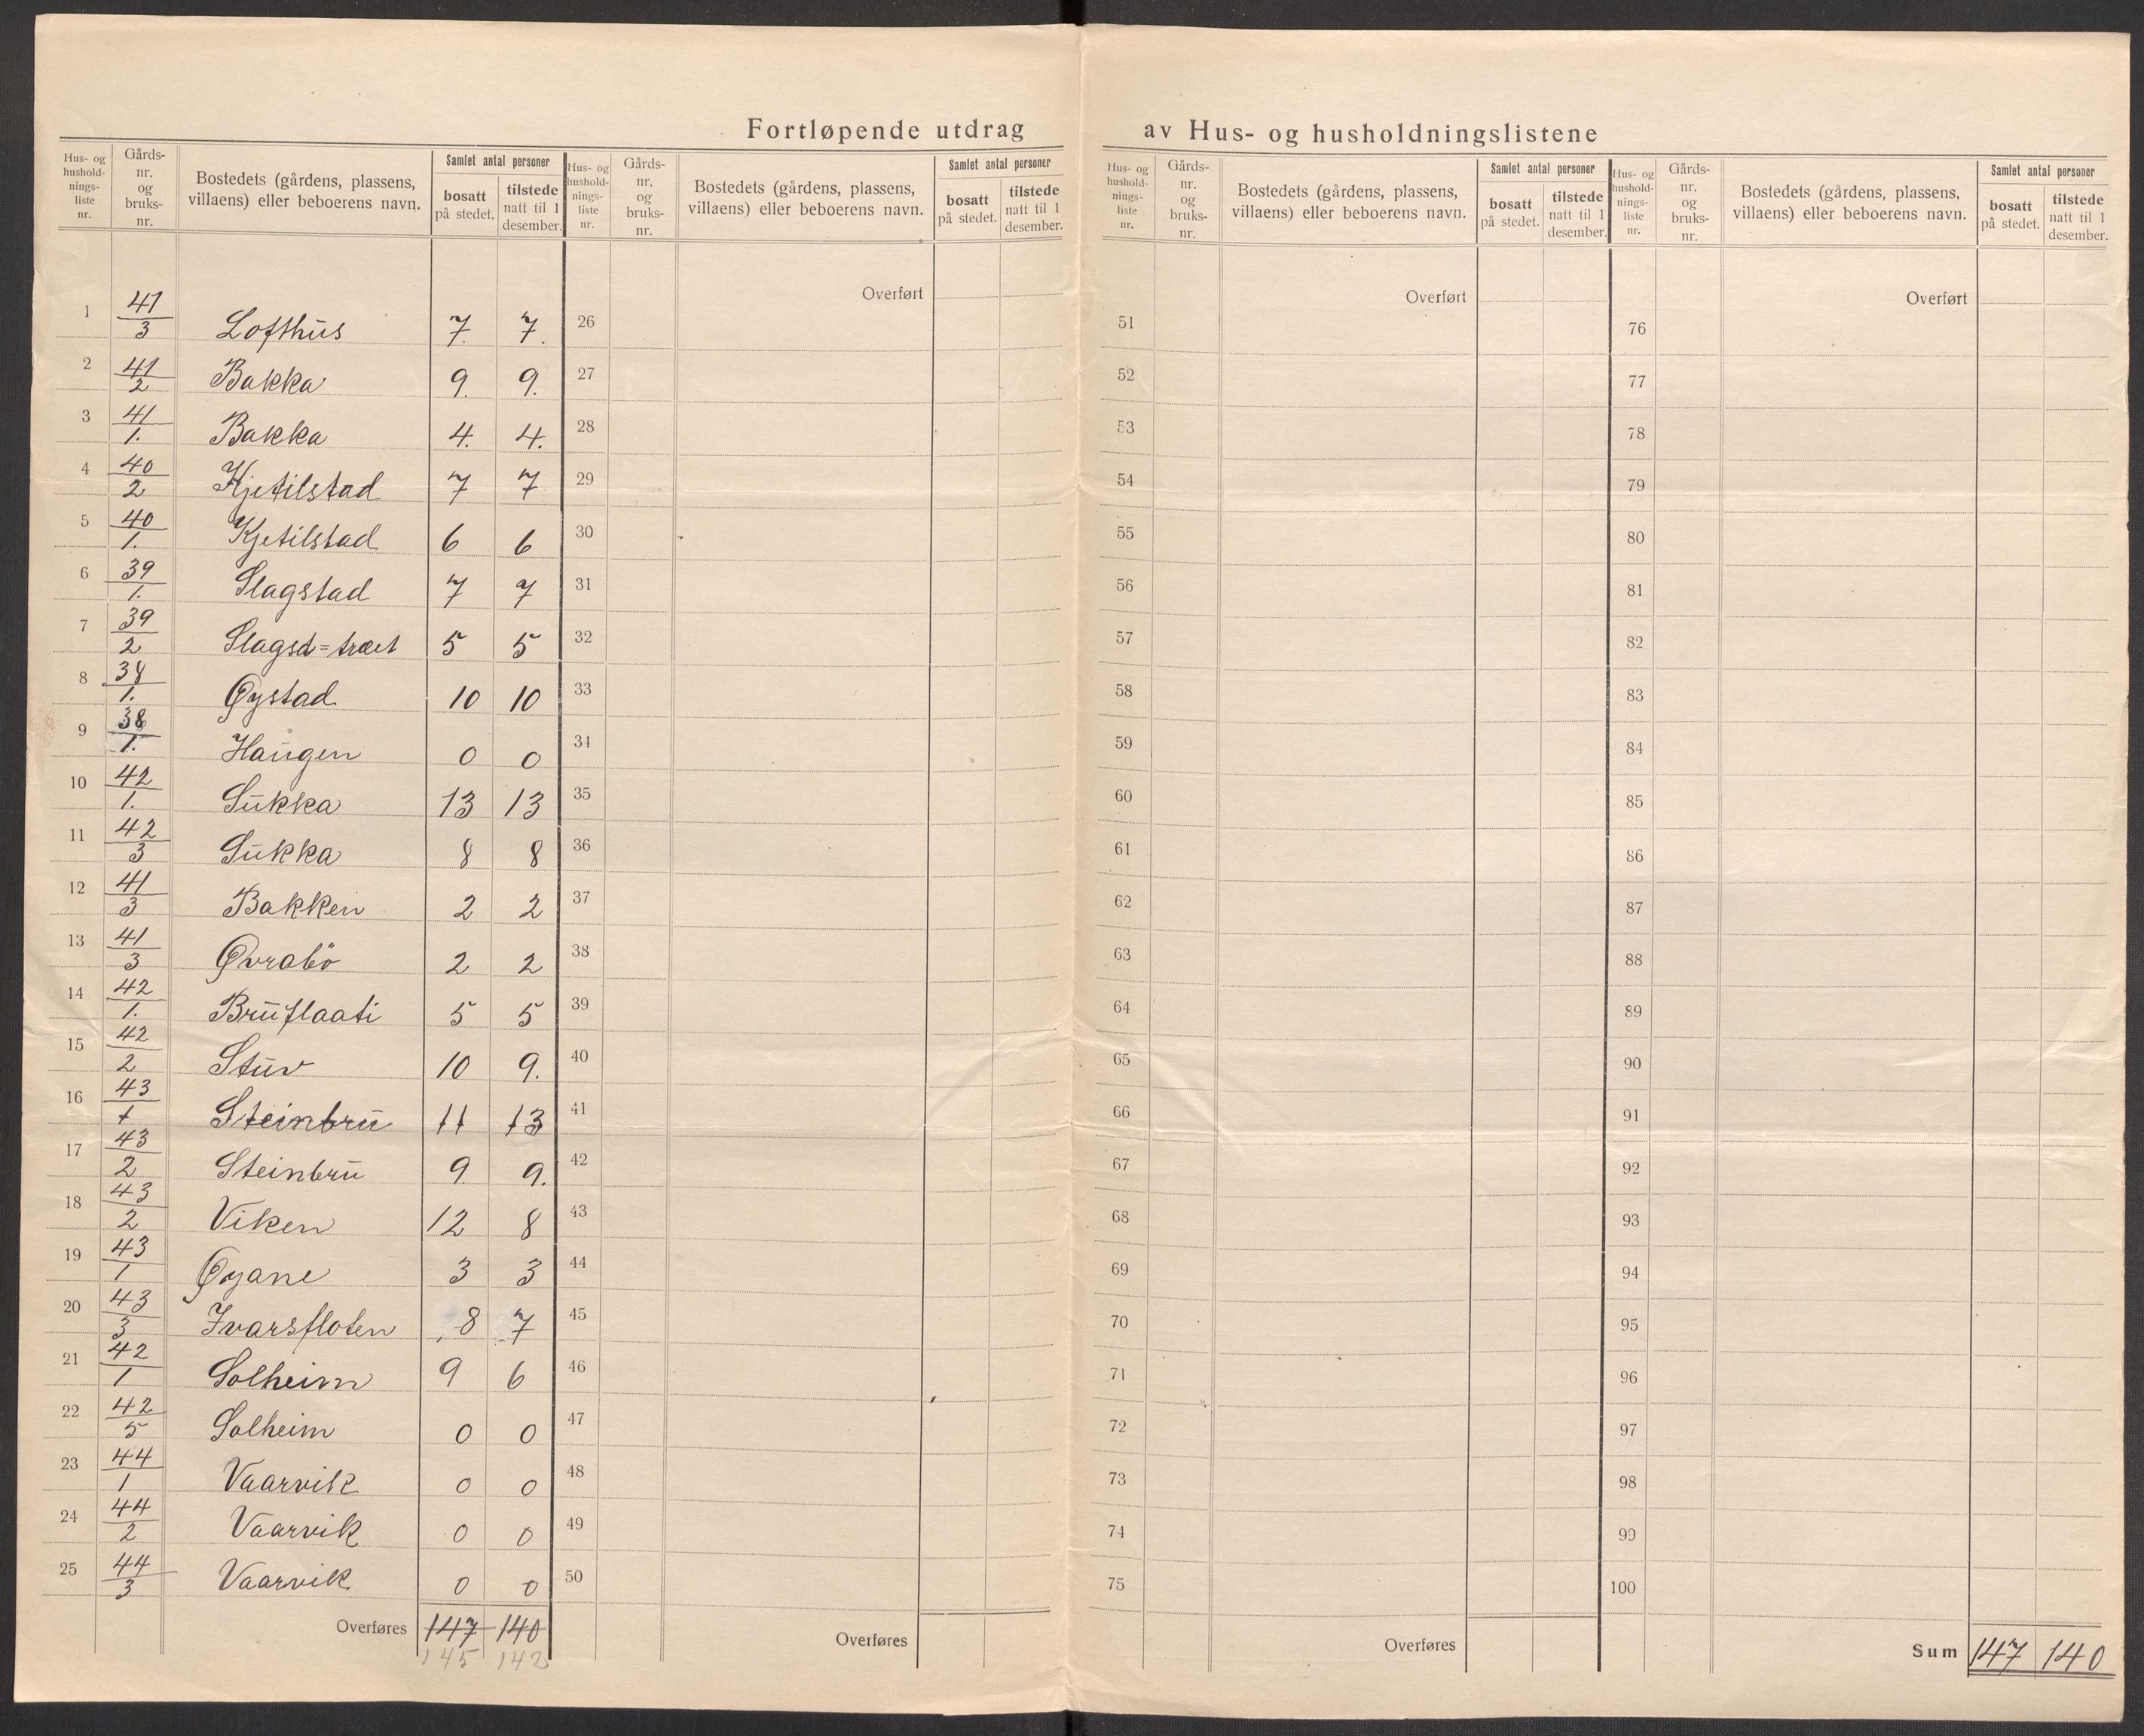 Fortløpende utdrag av Hus- og husholdningslistene
Hus- og hushold-nings-liste nr. | Gårds-nr. og bruks-nr. | Bostedets (gårdens, plassens, villaens) eller beboerens navn. | Samlet antal personer | bosatt på stedet. | tilstede natt til 1 desember.
Hus- og hushold-nings-liste nr. | Gårds-nr. og bruks-nr. | Bostedets (gårdens, plassens, villaens) eller beboerens navn. | Samlet antal personer | bosatt på stedet. | tilstede natt til 1 desember.
Hus- og hushold-nings-liste nr. | Gårds-nr. og bruks-nr. | Bostedets (gårdens, plassens, villaens) eller beboerens navn. | Samlet antal personer | bosatt på stedet. | tilstede natt til 1 desember.
Hus- og hushold-nings-liste nr. | Gårds-nr. og bruks-nr. | Bostedets (gårdens, plassens, villaens) eller beboerens navn. | Samlet antal personer | bosatt på stedet. | tilstede natt til 1 desember.
1 41/3 Lofthus 7. 7.
2 41/2 Bakka 9. 9.
3 41/1. Bakka 4. 4.
4 40/2 Kjetilstad 7 7
5 40/1. Kjetilstad 6 6
6 39/1. Slagstad 7 7
7 39/2 Slagsd=træet 5 5
8 38/1. Øystad 10 10
9 38/1. Haugen 0 0
10 42/1. Sukka 13 13
11 42/3 Sukka 8 8
12 41/3 Bakken 2 2
13 41/3 Øvrabö 2 2
14 42/1. Bruflaati 5 5
15 42/2 Stuv 10 9.
16 43/1 Steinbru 11 13
17 43/2 Steinbru 9 9.
18 43/2 Viken 12 8
19 43/1 Øyane 3 3
20 43/3 Ivarsfloten 8 7
21 42/1 Solheim 9 6
22 42/5 Solheim 0 0
23 44/1 Vaarvik 0 0
24 44/2 Vaarvik 0 0
25 44/3 Vaarvik 0 0
Overføres 147 140
145 142
Overført
26
27
28
29
30
31
32
33
34
35
36
37
38
39
40
41
42
43
44
45
46
47
48
49
50
Overføres
Overført
51
52
53
54
55
56
57
58
59
60
61
62
63
64
65
66
67
68
69
70
71
72
73
74
75
Overføres
Overført
76
77
78
79
80
81
82
83
84
85
86
87
88
89
90
91
92
93
94
95
96
97
98
99
100
Sum 147 140